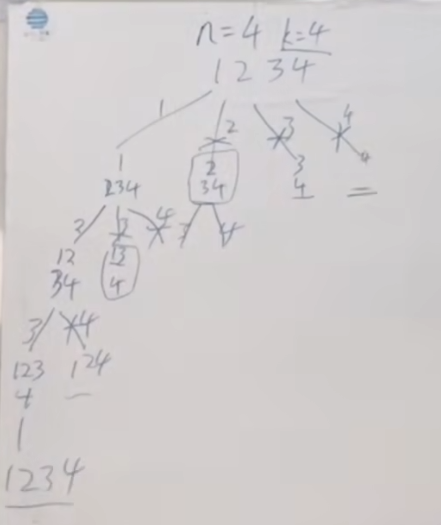 n=4 k=4
1 2 3 4
1 2 3 4
1 2 3 4
234 34 4 =
2 3 4 3 4
12 13
34 4
3 4
123 124
4 -
1234